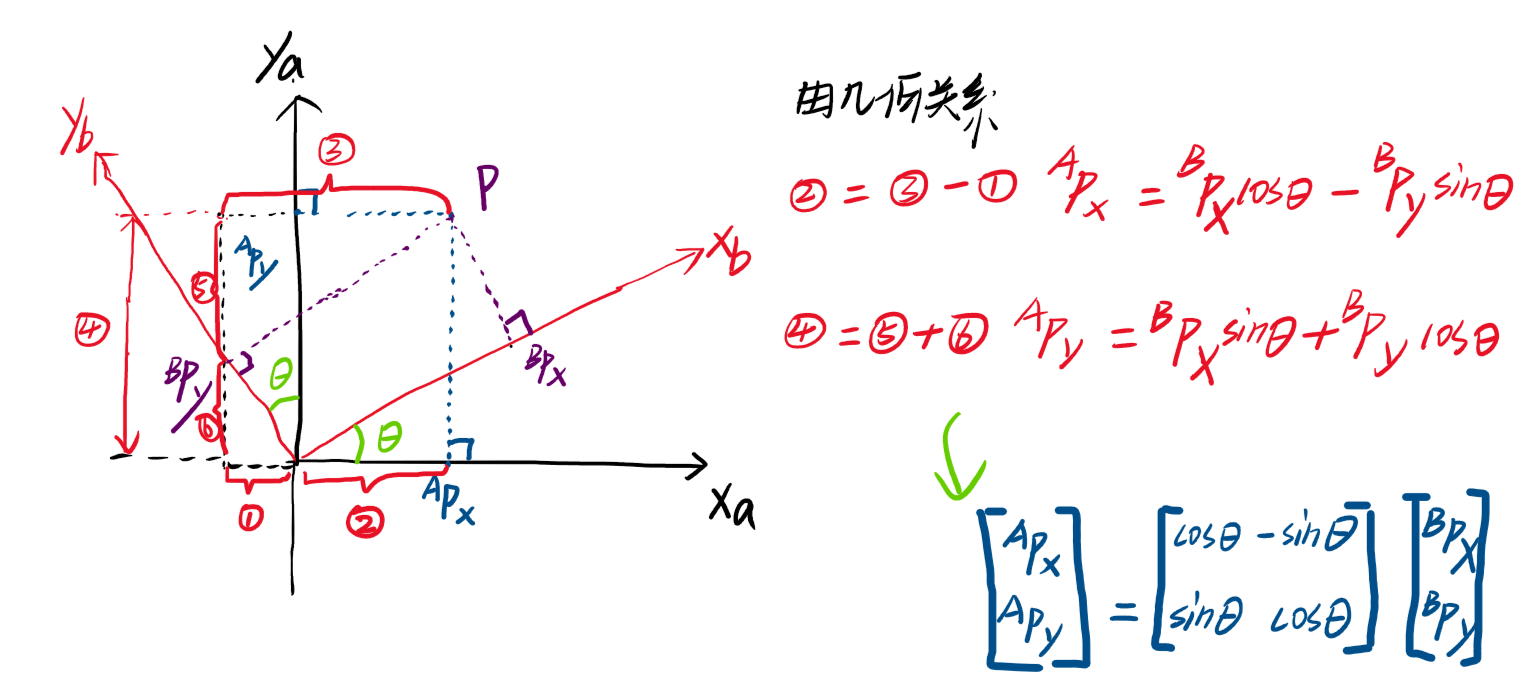 Ya
Yb
③
P
ᴬPy
Xb
⑤
④
ᴮPy
θ
ᴮPx
⑥
θ
①
②
ᴬPx
Xa
由几何关系
② = ③ - ① ᴬPx = ᴮPx cosθ - ᴮPy sinθ
④ = ⑤ + ⑥ ᴬPy = ᴮPx sinθ + ᴮPy cosθ
[ᴬPx] = [cosθ -sinθ] [ᴮPx]
[ᴬPy] [sinθ cosθ] [ᴮPy]